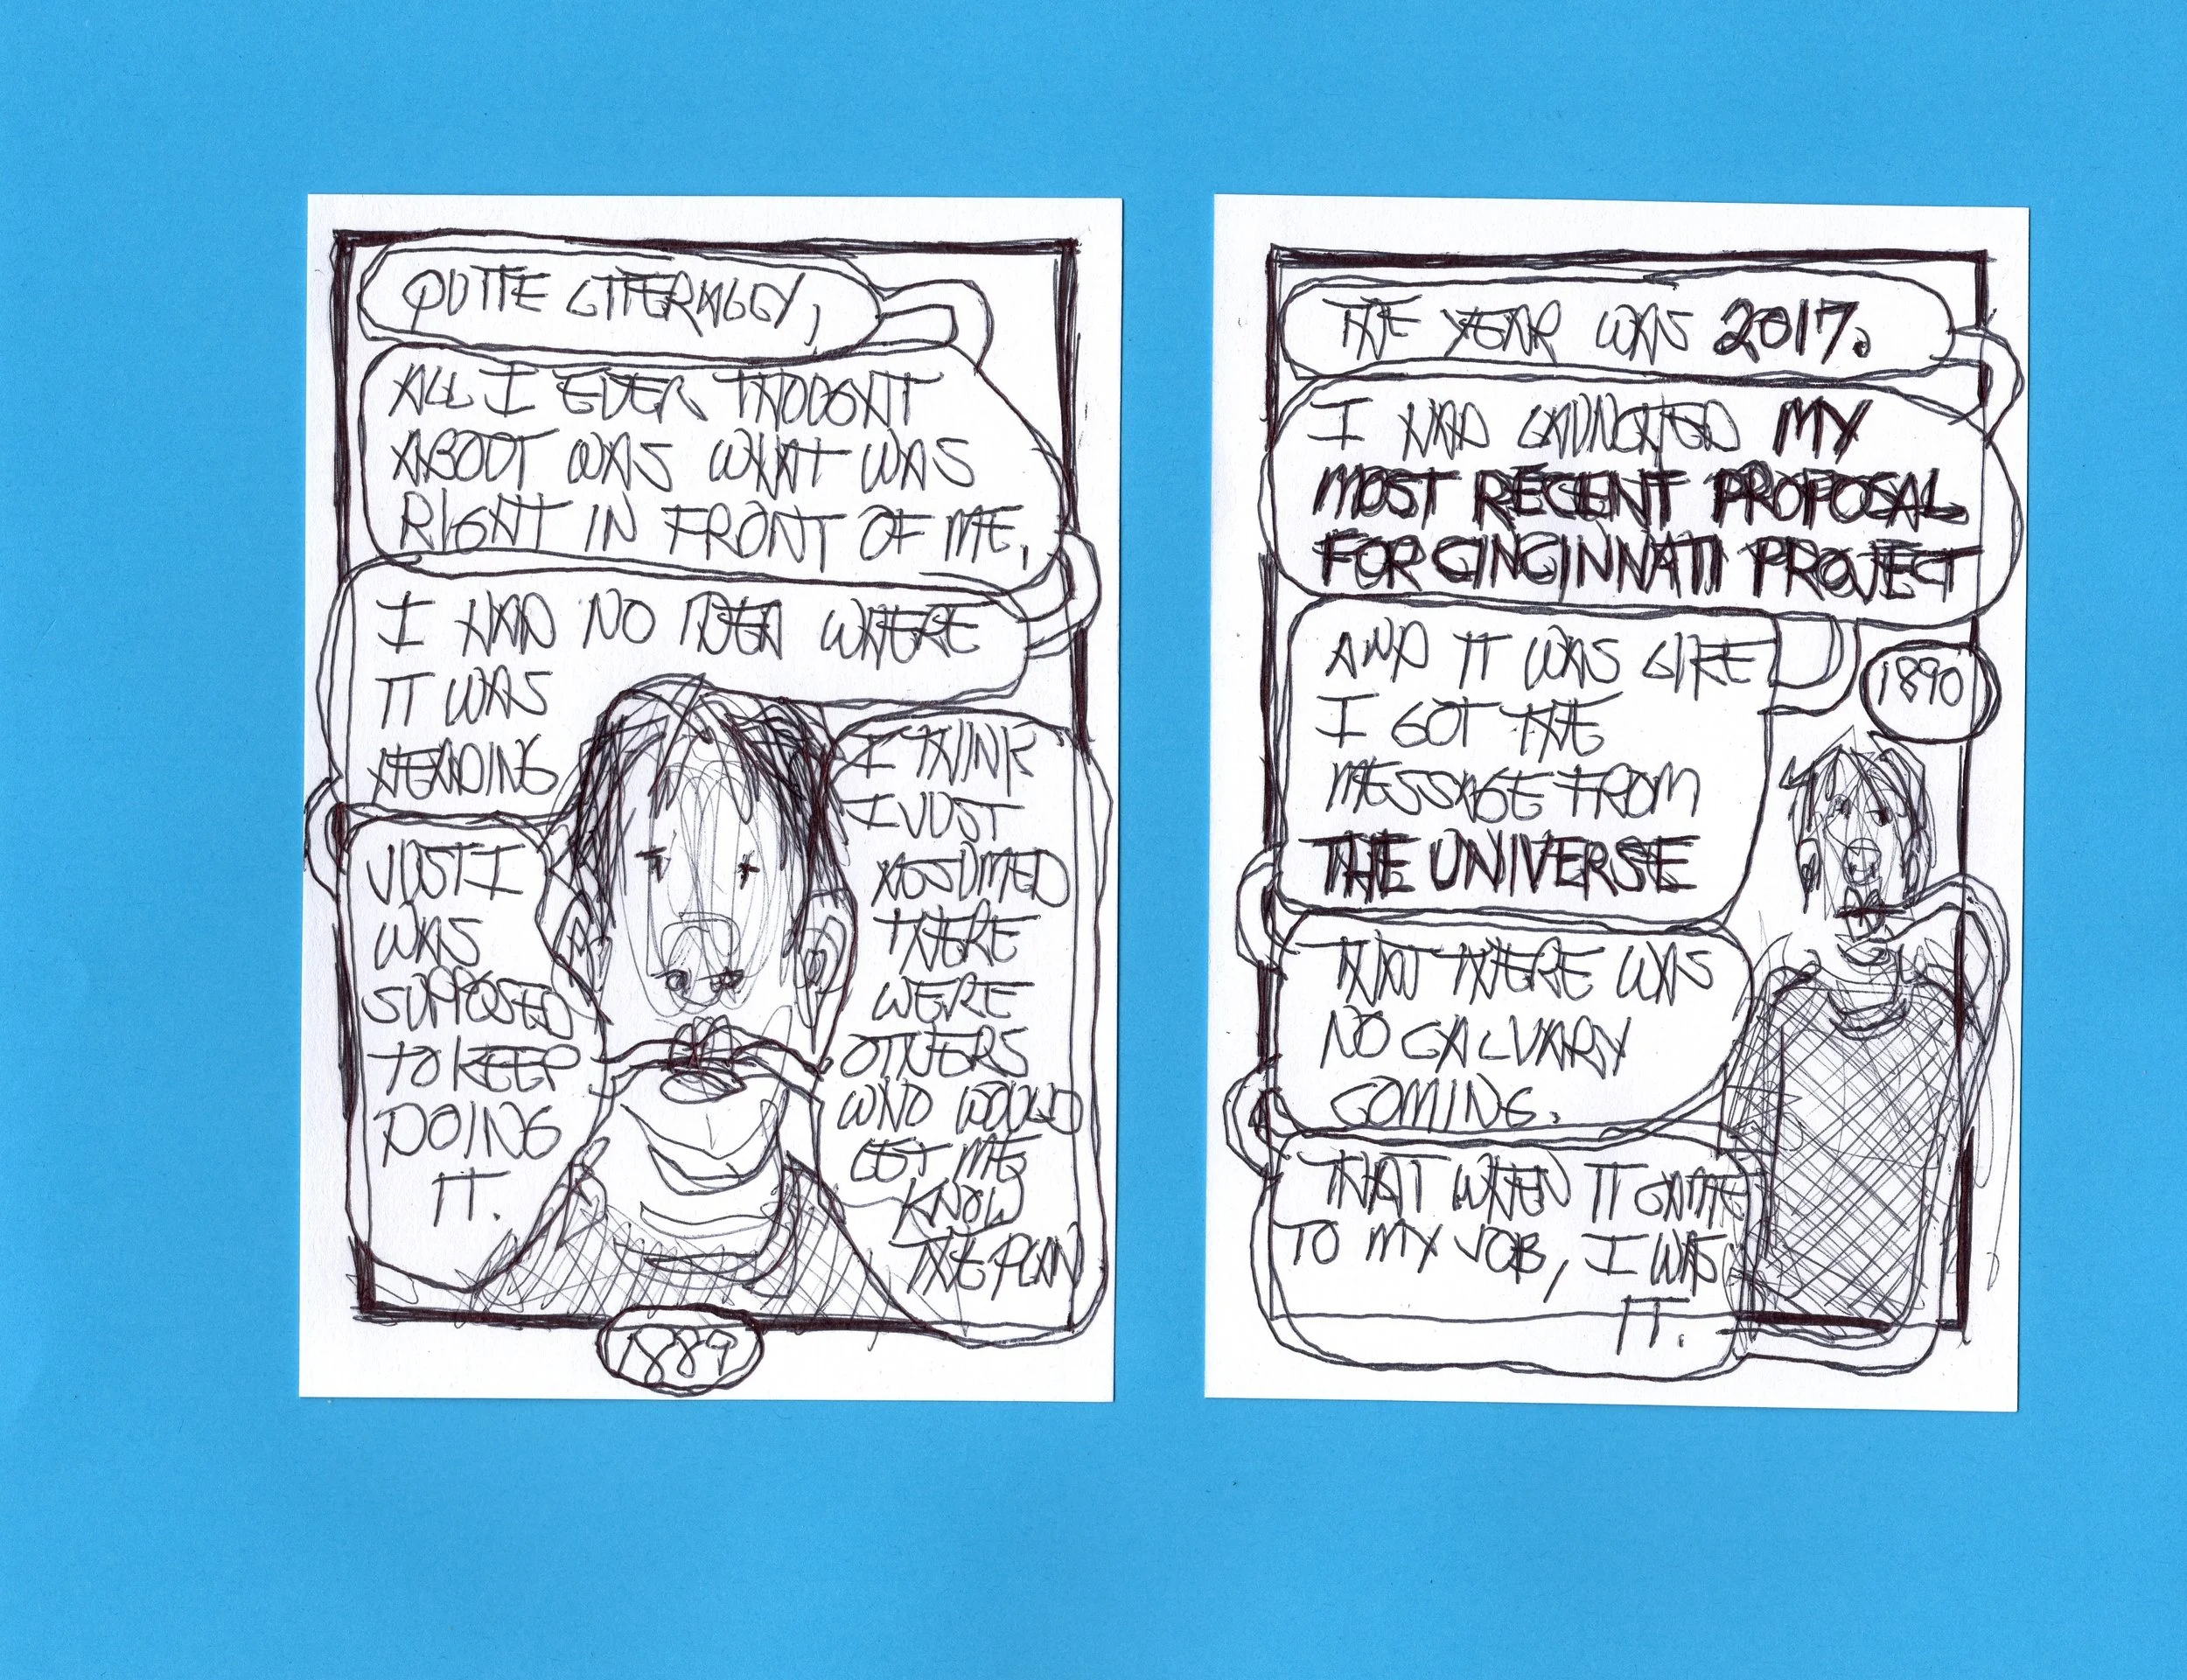 QUITE LITERALLY,
ALL I EVER THOUGHT
ABOUT WAS WHAT WAS
RIGHT IN FRONT OF ME,
I HAD NO IDEA WHERE
IT WAS
HEADING
JUST I
WAS
SUPPOSED
TO KEEP
DOING
IT.
I THINK
I JUST
ASSUMED
THERE
WERE
OTHERS
WHO WOULD
LET ME
KNOW
THE PLAN
1889
THE YEAR WAS 2017.
I HAD LAUNCHED MY
MOST RECENT PROPOSAL
FOR CINCINNATI PROJECT
1890
AND IT WAS LIKE
I GOT THE
MESSAGE FROM
THE UNIVERSE
THAT THERE WAS
NO CALVARY
COMING.
THAT WHEN IT CAME
TO MY JOB, I WAS
IT.